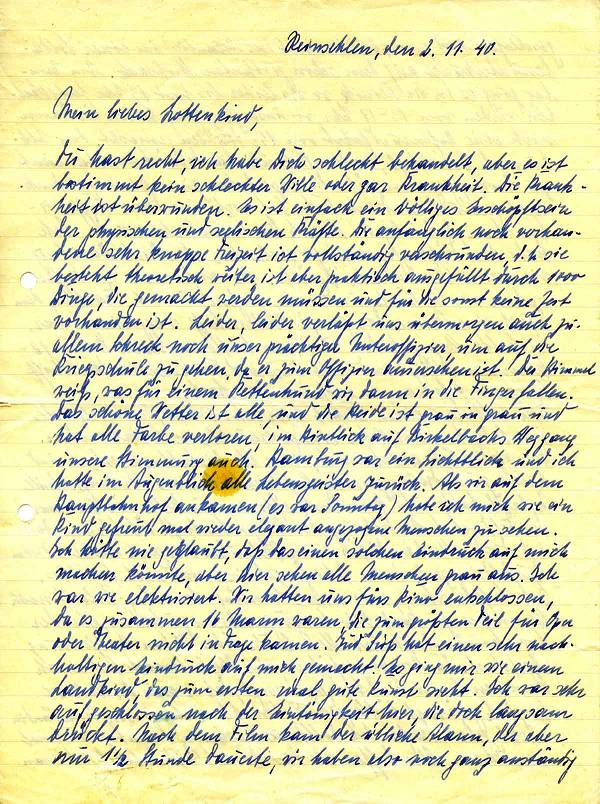 Reinsehlen, den 2. 11. 40.
Mein liebes Lottenkind,
Du hast recht, ich habe Dich schlecht behandelt, aber es ist
bestimmt kein schlechter Wille oder gar Krankheit. Die Krank-
heit ist überwunden. Es ist einfach ein völliges Erschöpftsein
der physischen und seelischen Kräfte. Die anfänglich noch vorhan-
dene sehr knappe Freizeit ist vollständig verschwunden, d. h. sie
besteht theoretisch weiter ist aber praktisch ausgefüllt durch 1000
Dinge, die gemacht werden müssen und für die sonst keine Zeit
vorhanden ist. Leider, leider verläßt uns übermorgen auch zu
allem Schreck noch unser prächtiger Unteroffizier, um auf die
Kriegsschule zu gehen, da er zum Offizier ausersehen ist. Der Himmel
weiß, was für einem Kettenhund wir dann in die Finger fallen.
Das schöne Wetter ist alle und die Heide ist grau in grau und
hat alle Farbe verloren, im Hinblick auf Birkelbachs Weggang
unsere Stimmung auch. Hamburg war ein Lichtblick und ich
hatte im Augenblick alle Lebensgeister zurück. Als wir auf dem
Hauptbahnhof ankamen (es war Sonntag) habe ich mich wie ein
Kind gefreut mal wieder elegant angezogene Menschen zu sehen.
Ich hätte nie geglaubt, daß das einen solchen Eindruck auf mich
machen könnte, aber hier sehen alle Menschen grau aus. Ich
war wie elektrisiert. Wir hatten uns fürs Kino entschlossen,
da es zusammen 16 Mann waren, die zum größten Teil für Oper
oder Theater nicht in Frage kamen. Jud Süß hat einen sehr nach-
haltigen Eindruck auf mich gemacht. Es ging mir wie einem
Landkind, das zum ersten mal gute Kunst sieht. Ich war sehr
aufgeschlossen nach der Eintönigkeit hier, die doch langsam
drückt. Nach dem Film kam der übliche Alarm, der aber
nur 1 1/2 Stunde dauerte, wir haben also noch ganz anständig